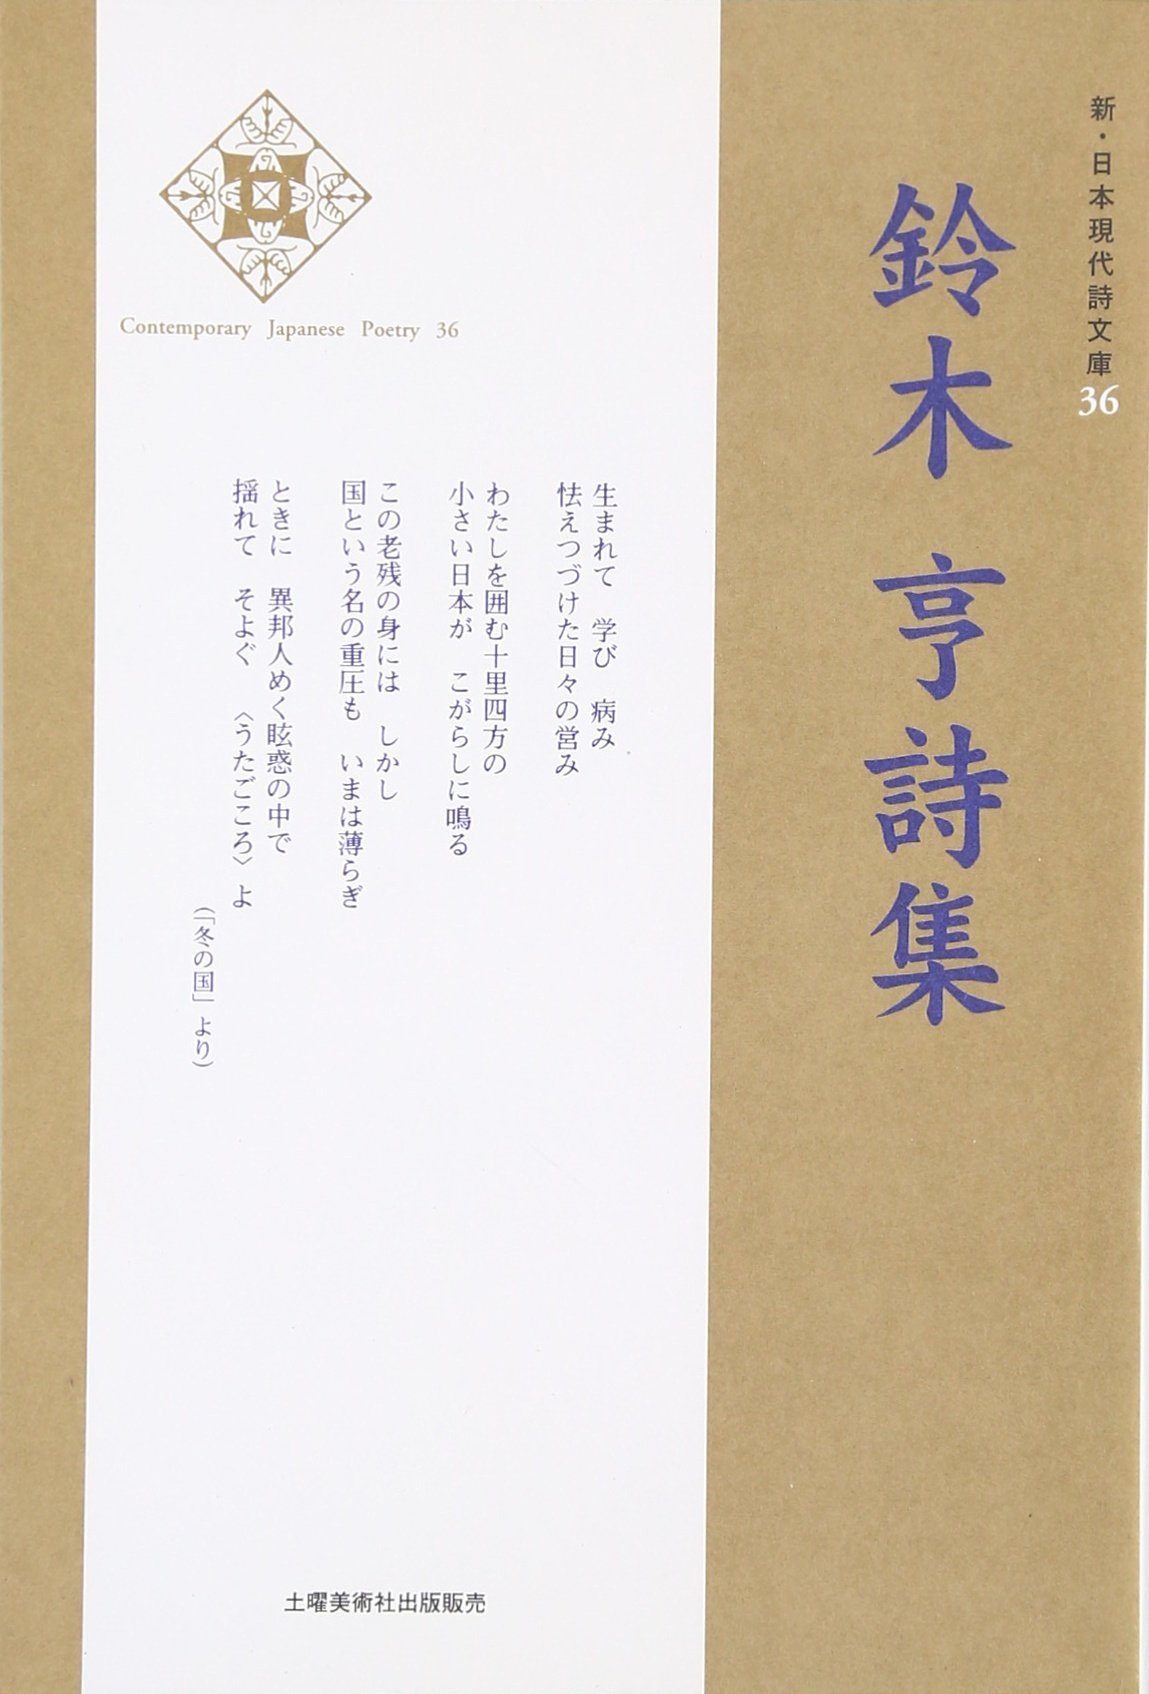 新・日本現代詩文庫
36
鈴木 亨詩集
Contemporary Japanese Poetry 36
生まれて 学び 病み
怯えつづけた日々の営み
わたしを囲む十里四方の
小さい日本が こがらしに鳴る
この老残の身には しかし
国という名の重圧も いまは薄らぎ
ときに 異邦人めく眩惑の中で
揺れて そよぐ 〈うたごころ〉よ
(「冬の国」より)
土曜美術社出版販売